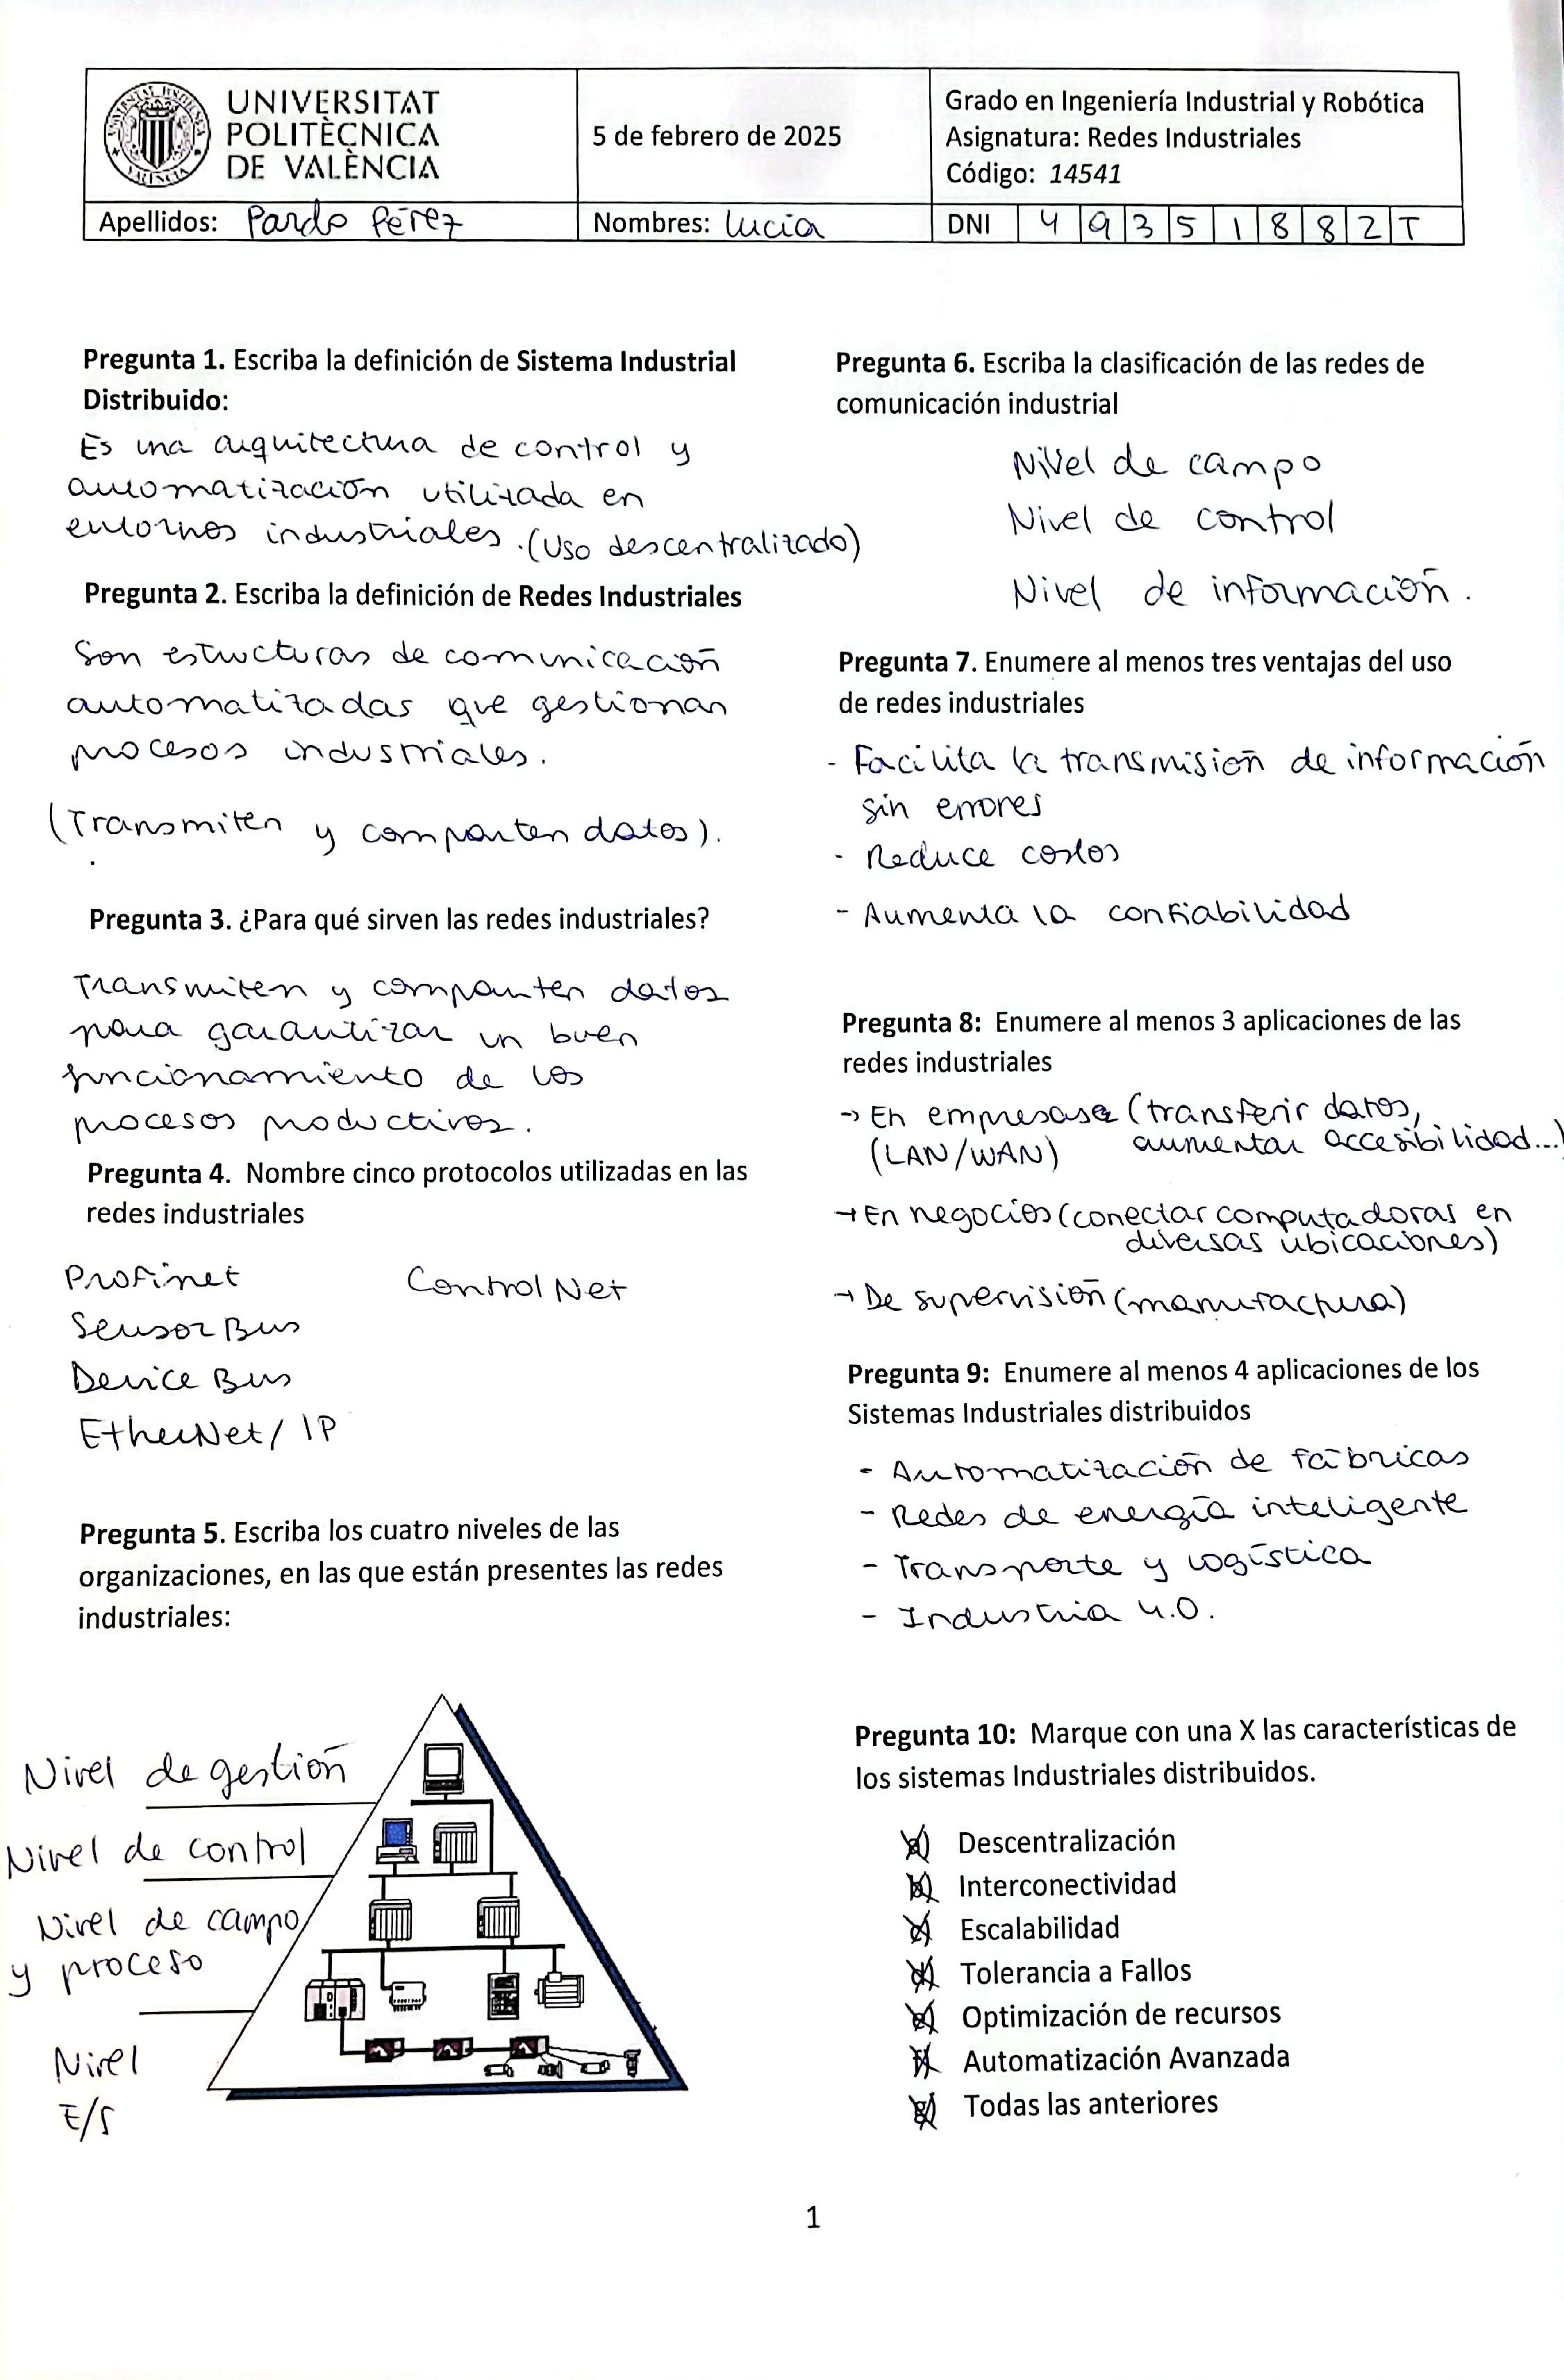 UNIVERSITAT
POLITÈCNICA
DE VALÈNCIA
5 de febrero de 2025
Grado en Ingeniería Industrial y Robótica
Asignatura: Redes Industriales
Código: 14541
Apellidos: Pardo Pérez
Nombres: Lucía
DNI 4 9 3 5 1 8 8 2 T
Pregunta 1. Escriba la definición de Sistema Industrial
Distribuido:
Es una arquitectura de control y
automatización utilizada en
entornos industriales. (Uso descentralizado)
Pregunta 2. Escriba la definición de Redes Industriales
Son estructuras de comunicación
automatizadas que gestionan
procesos industriales.
(Transmiten y comparten datos).
Pregunta 3. ¿Para qué sirven las redes industriales?
Transmiten y comparten datos
para garantizar un buen
funcionamiento de los
procesos productivos.
Pregunta 4. Nombre cinco protocolos utilizadas en las
redes industriales
Profinet
ControlNet
Sensor Bus
Device Bus
EtherNet/IP
Pregunta 5. Escriba los cuatro niveles de las
organizaciones, en las que están presentes las redes
industriales:
Nivel de gestión
Nivel de control
Nivel de campo
y proceso
Nivel
E/S
Pregunta 6. Escriba la clasificación de las redes de
comunicación industrial
Nivel de campo
Nivel de control
Nivel de información.
Pregunta 7. Enumere al menos tres ventajas del uso
de redes industriales
- Facilita la transmisión de información
sin errores
- Reduce costos
- Aumenta la confiabilidad
Pregunta 8: Enumere al menos 3 aplicaciones de las
redes industriales
→ En empresas (transferir datos,
(LAN/WAN) aumentar accesibilidad...)
→ En negocios (conectar computadoras en
diversas ubicaciones)
→ De supervisión (manufactura)
Pregunta 9: Enumere al menos 4 aplicaciones de los
Sistemas Industriales distribuidos
- Automatización de fábricas
- Redes de energía inteligente
- Transporte y logística
- Industria 4.0.
Pregunta 10: Marque con una X las características de
los sistemas Industriales distribuidos.
a) Descentralización
b) Interconectividad
c) Escalabilidad
d) Tolerancia a Fallos
e) Optimización de recursos
f) Automatización Avanzada
g) Todas las anteriores
1